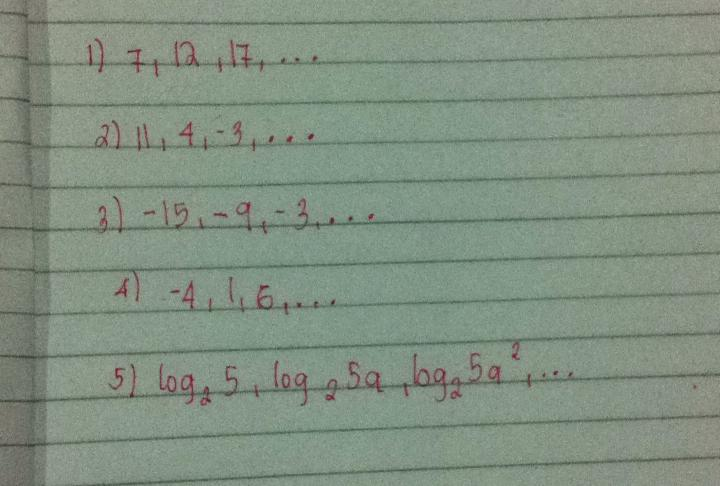 1) 7, 12, 17, ...
2) 11, 4, -3, ...
3) -15, -9, -3, ...
4) -4, 1, 6, ...
5) log₂ 5, log₂ 5a, log₂ 5a², ...